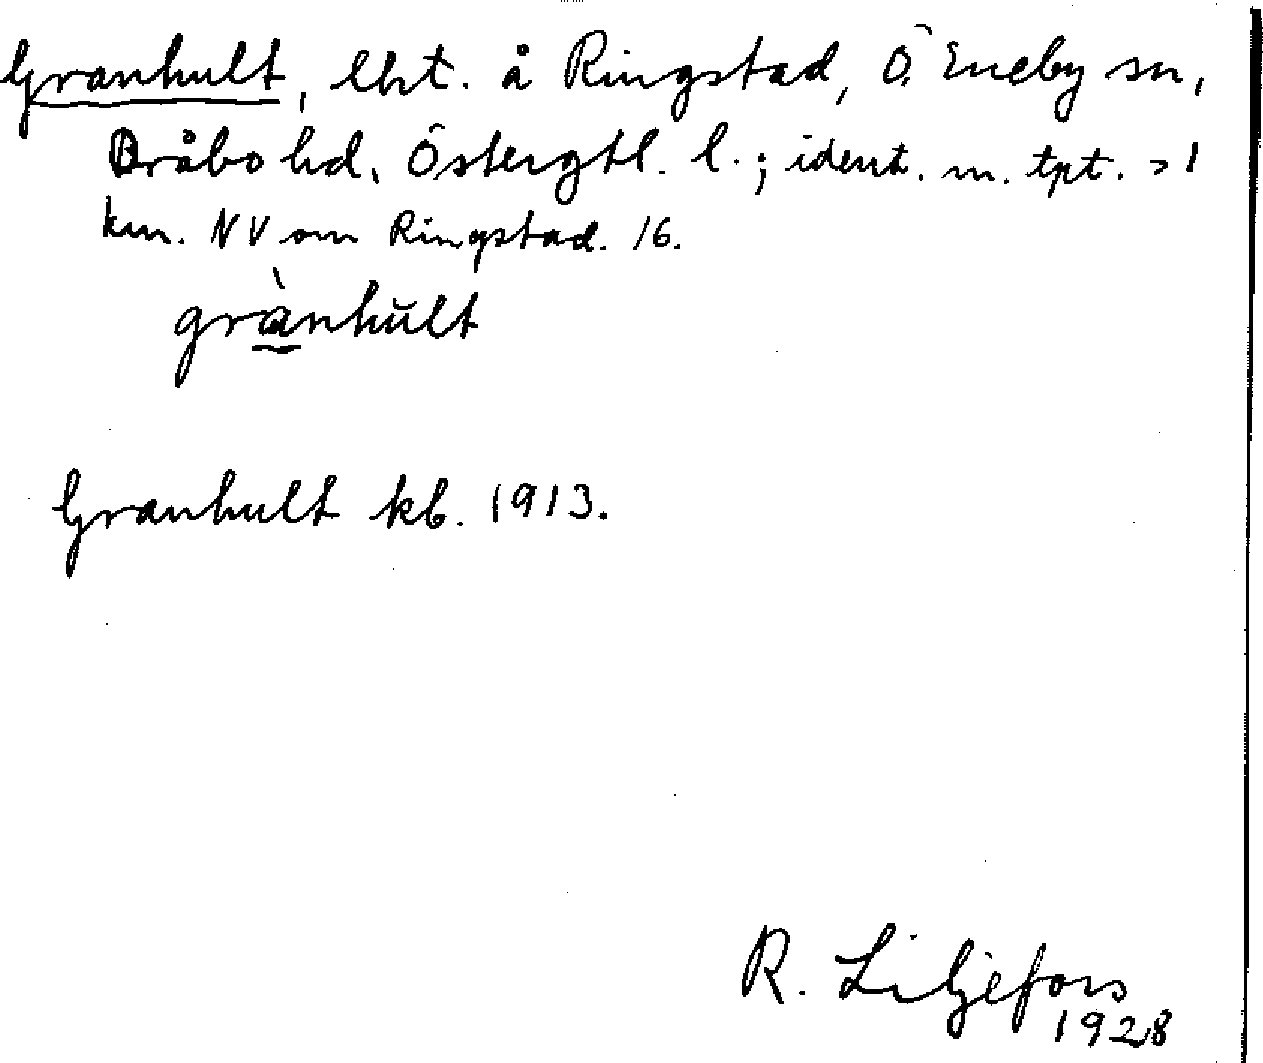 Granhult, lht. å Ringstad, Ö. Eneby sn,
Bråbo hd, Östergtl. l.; ident. m. tpt. > 1
km. NV om Ringstad. 16.
grànhŭlt
Granhult kb. 1913.
R. Liljefors
1928